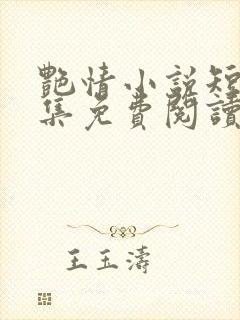 艷情小說短
集免費閱讀
王玉濤